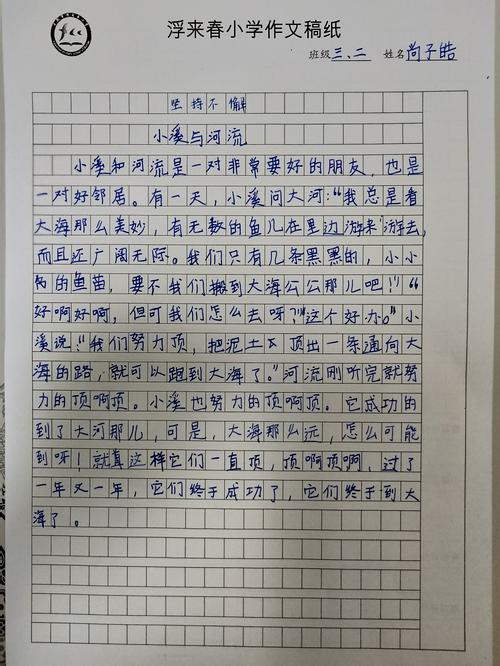 浮来春小学作文稿纸
班级三、二 姓名尚子皓
坚持不懈
小溪与河流
小溪和河流是一对非常要好的朋友，也是
一对好邻居。有一天，小溪问大河：“我总是看
大海那么美妙，有无数的鱼儿在里边游来游去，
而且还广阔无际。我们只有几条黑黑的，小小
的鱼苗，要不我们搬到大海公公那儿吧！”“
好啊好啊，但可我们怎么去呀？”“这个好办。”小
溪说：“我们努力顶，把泥土顶出一条通向大
海的路，就可以跑到大海了。”河流刚听完就努
力的顶啊顶。小溪也努力的顶啊顶。它成功的
到了大河那儿，可是，大海那么远，怎么可能
到呀！就真这样它们一直顶，顶啊顶啊，过了
一年又一年，它们终于成功了，它们终于到大
海了。